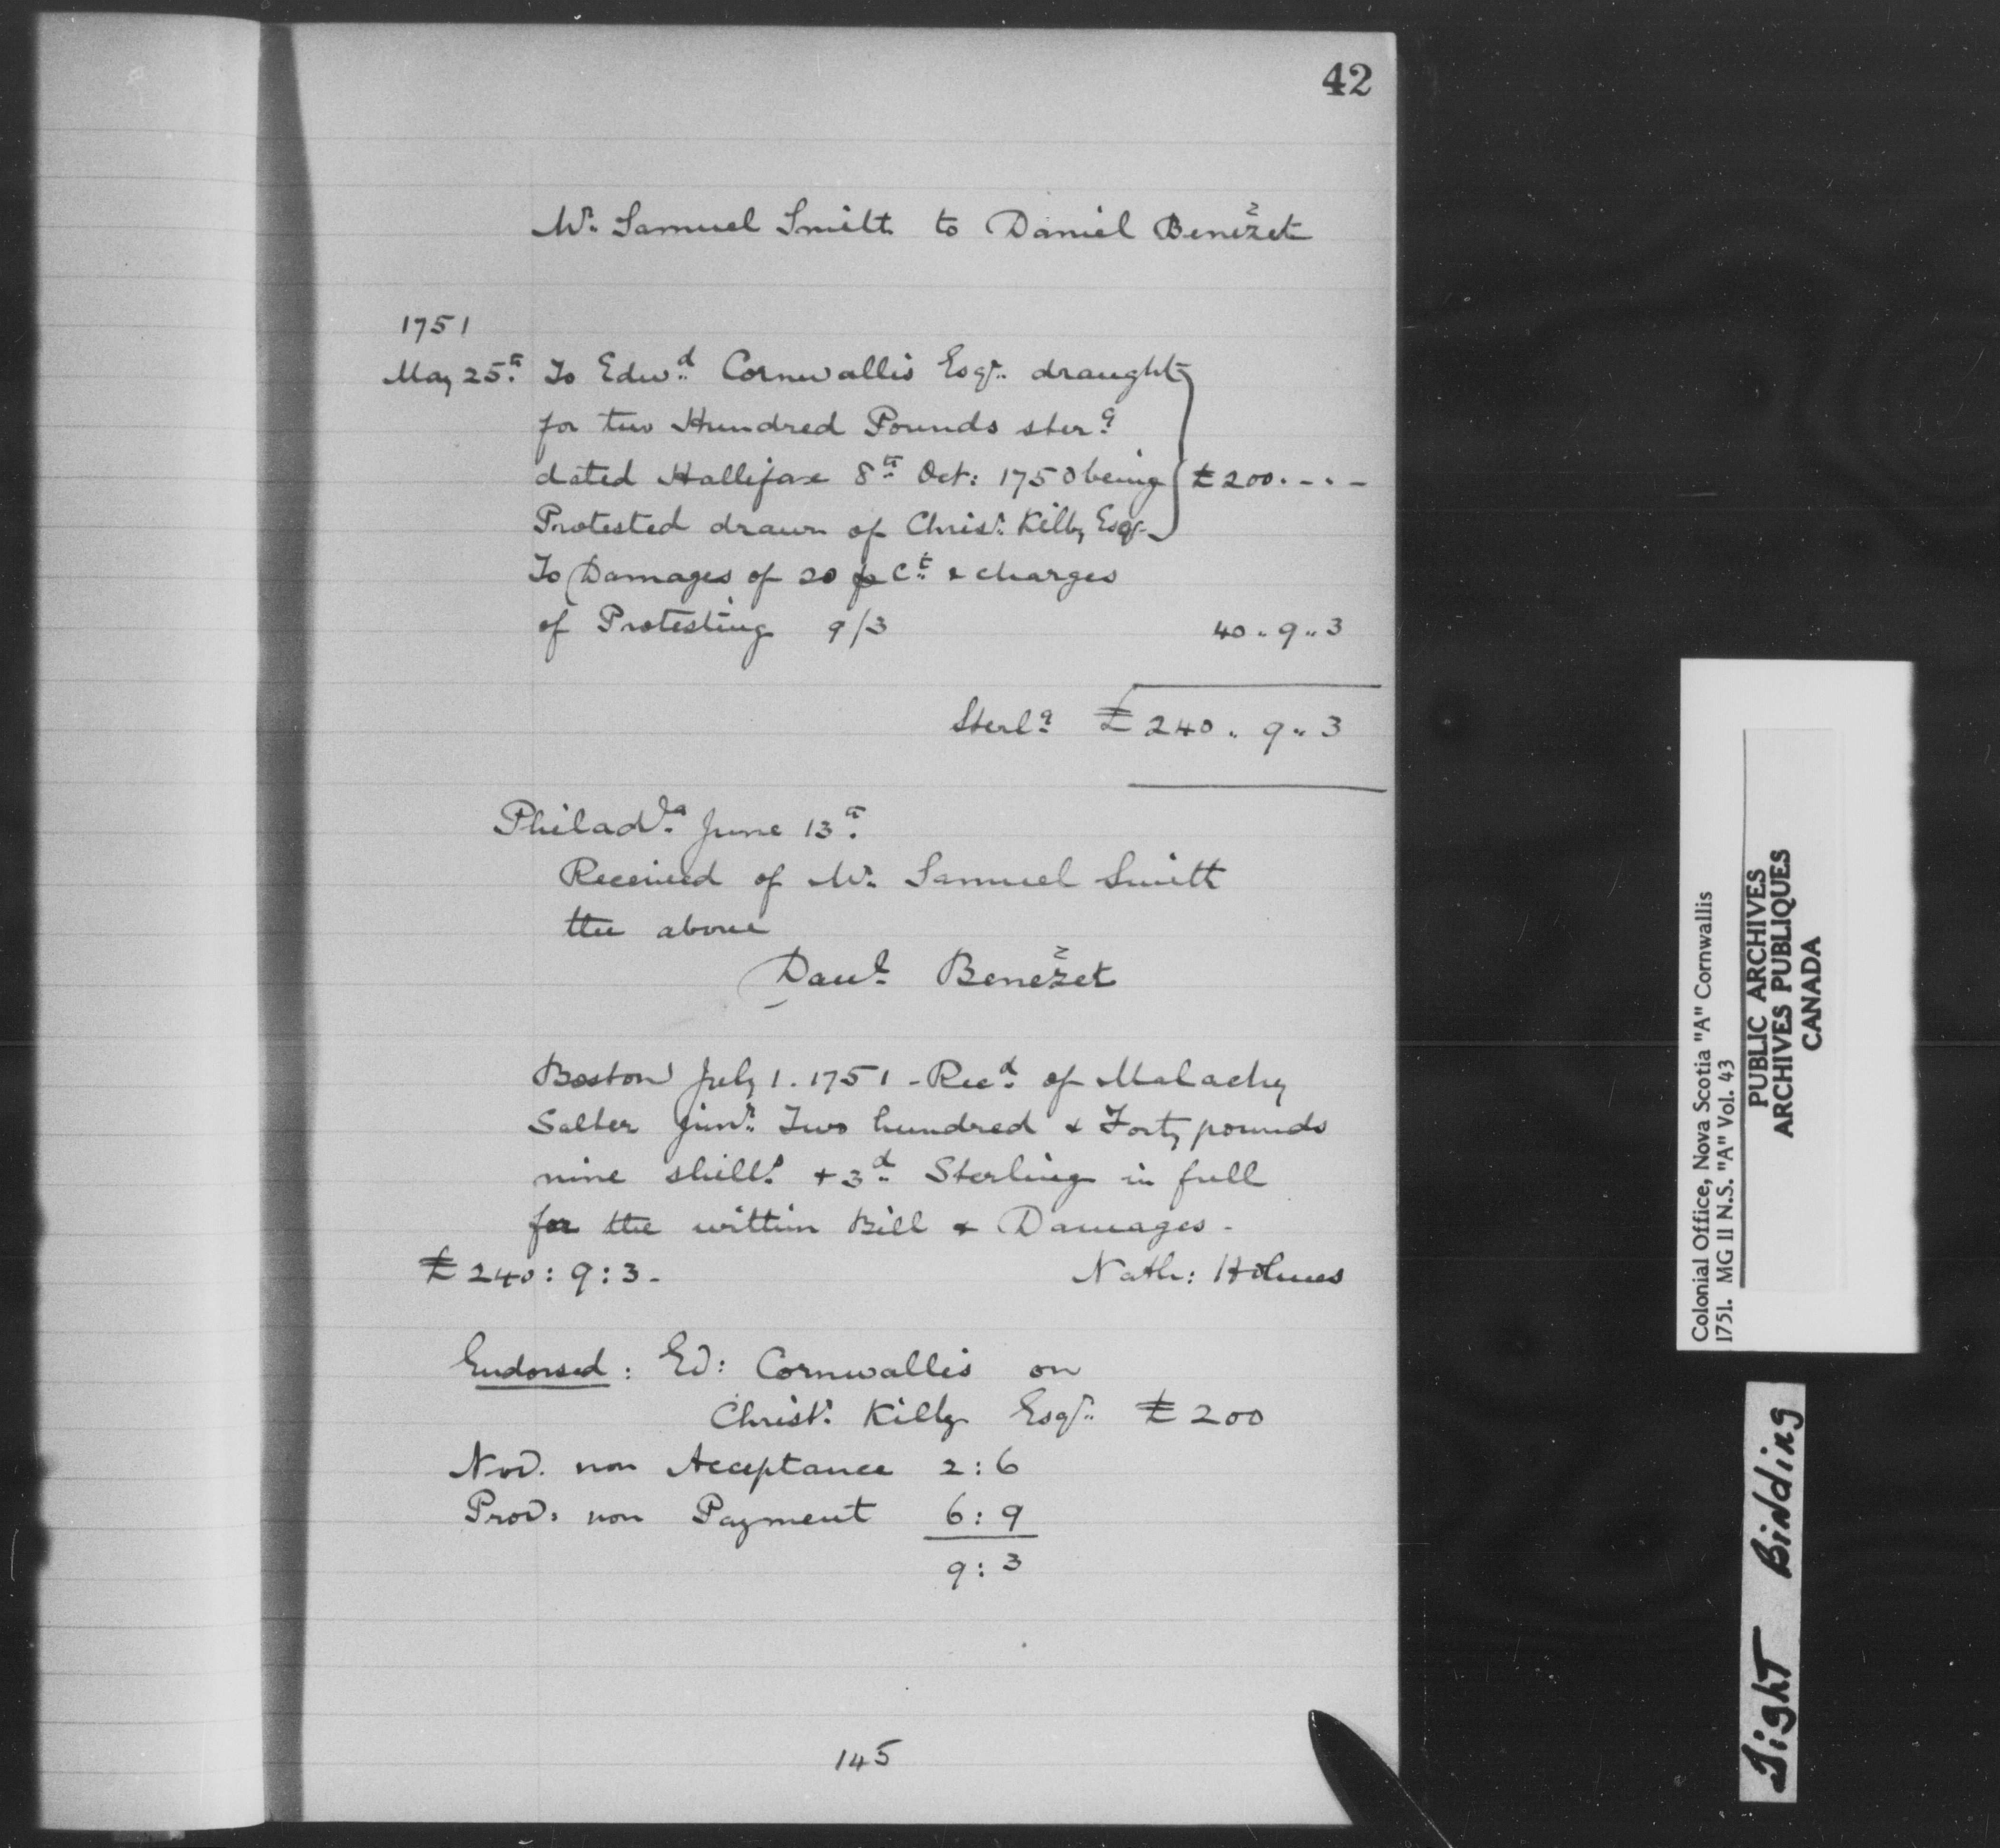 42
Mr. Samuel Smith to Daniel Benezet
1751
May 25th. To Edwd. Cornwallis Esqr. draught
for two Hundred Pounds sterg.
dated Hallifax 8th. Oct: 1750 being £200. - . -
Protested drawn of Chrisr. Kilby Esqr.
To Damages of 20 p Ct. & charges
of Protesting 9/3 40 .. 9 .. 3
Sterlg. £240 .. 9 .. 3
Philadla. June 13th.
Received of Mr. Samuel Smith
the above
Danl. Benezet
Boston July 1. 1751 - Recd. of Malachy
Salter junr. Two hundred & Forty pounds
nine shills. + 3d. Sterling in full
for the within Bill & Damages -
£240 : 9 : 3 - Nath: Holmes
Endorsed : Ed: Cornwallis on
Christr. Kilby Esqr. £200
Nod. non Acceptance 2 : 6
Prod: non Payment 6 : 9
9 : 3
145
Colonial Office, Nova Scotia "A" Cornwallis
1751. MG 11 N.S. "A" Vol. 43
PUBLIC ARCHIVES
ARCHIVES PUBLIQUES
CANADA
Tight Binding